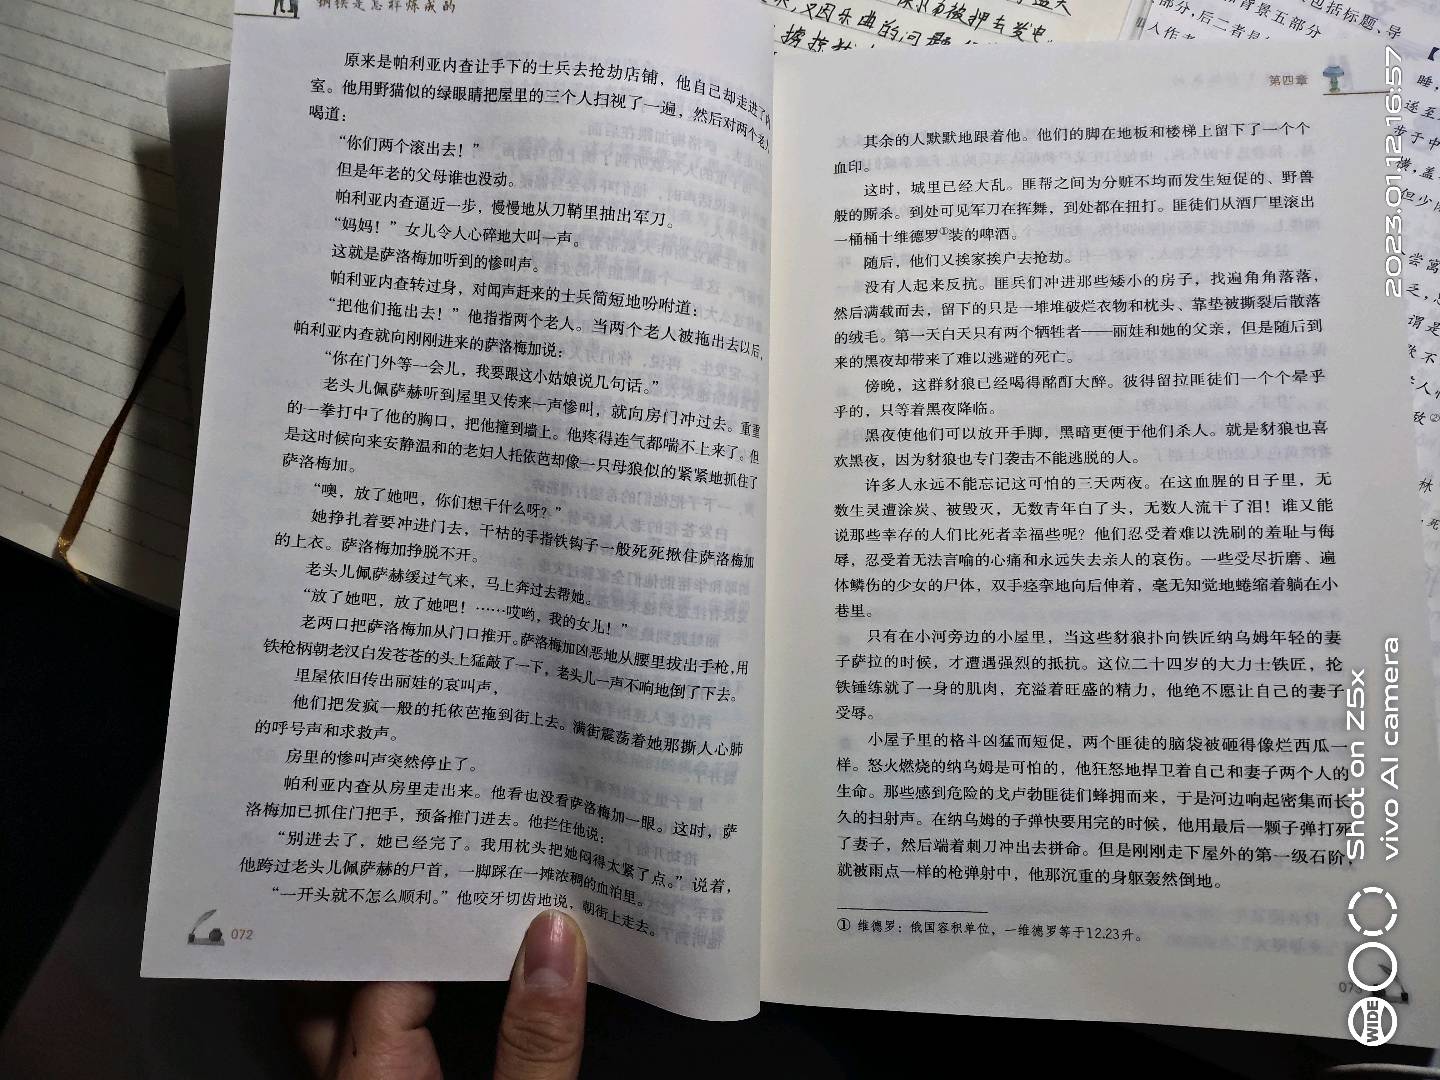 钢铁是怎样炼成的
原来是帕利亚内查让手下的士兵去抢劫店铺，他自己却走进了内
室。他用野猫似的绿眼睛把屋里的三个人扫视了一遍，然后对两个老人
喝道：
“你们两个滚出去！”
但是年老的父母谁也没动。
帕利亚内查逼近一步，慢慢地从刀鞘里抽出军刀。
“妈妈！”女儿令人心碎地大叫一声。
这就是萨洛梅加听到的惨叫声。
帕利亚内查转过身，对闻声赶来的士兵简短地吩咐道：
“把他们拖出去！”他指指两个老人。当两个老人被拖出去以后，
帕利亚内查就向刚刚进来的萨洛梅加说：
“你在门外等一会儿，我要跟这小姑娘说几句话。”
老头儿佩萨赫听到屋里又传来一声惨叫，就向房门冲过去。重重
的一拳打中了他的胸口，把他撞到墙上。他疼得连气都喘不上来了。但
是这时候向来安静温和的老妇人托依芭却像一只母狼似的紧紧地抓住了
萨洛梅加。
“噢，放了她吧，你们想干什么呀？”
她挣扎着要冲进门去，干枯的手指铁钩子一般死死揪住萨洛梅加
的上衣。萨洛梅加挣脱不开。
老头儿佩萨赫缓过气来，马上奔过去帮她。
“放了她吧，放了她吧！……哎哟，我的女儿！”
老两口把萨洛梅加从门口推开。萨洛梅加凶恶地从腰里拔出手枪，用
铁枪柄朝老汉白发苍苍的头上猛敲了一下，老头儿一声不响地倒了下去。
里屋依旧传出丽娃的哀叫声，
他们把发疯一般的托依芭拖到街上去。满街震荡着她那撕人心肺
的呼号声和求救声。
房里的惨叫声突然停止了。
帕利亚内查从房里走出来。他看也没看萨洛梅加一眼。这时，萨
洛梅加已抓住门把手，预备推门进去。他拦住他说：
“别进去了，她已经完了。我用枕头把她闷得太紧了点。”说着，
他跨过老头儿佩萨赫的尸首，一脚踩在一摊浓稠的血泊里。
“一开头就不怎么顺利。”他咬牙切齿地说，朝街上走去。
072
第四章
其余的人默默地跟着他。他们的脚在地板和楼梯上留下了一个个
血印。
这时，城里已经大乱。匪帮之间为分赃不均而发生短促的、野兽
般的厮杀。到处可见军刀在挥舞，到处都在扭打。匪徒们从酒厂里滚出
一桶桶十维德罗①装的啤酒。
随后，他们又挨家挨户去抢劫。
没有人起来反抗。匪兵们冲进那些矮小的房子，找遍角角落落，
然后满载而去，留下的只是一堆堆破烂衣物和枕头、靠垫被撕裂后散落
的绒毛。第一天白天只有两个牺牲者——丽娃和她的父亲，但是随后到
来的黑夜却带来了难以逃避的死亡。
傍晚，这群豺狼已经喝得酩酊大醉。彼得留拉匪徒们一个个晕乎
乎的，只等着黑夜降临。
黑夜使他们可以放开手脚，黑暗更便于他们杀人。就是豺狼也喜
欢黑夜，因为豺狼也专门袭击不能逃脱的人。
许多人永远不能忘记这可怕的三天两夜。在这血腥的日子里，无
数生灵遭涂炭、被毁灭，无数青年白了头，无数人流干了泪！谁又能
说那些幸存的人们比死者幸福些呢？他们忍受着难以洗刷的羞耻与侮
辱，忍受着无法言喻的心痛和永远失去亲人的哀伤。一些受尽折磨、遍
体鳞伤的少女的尸体，双手痉挛地向后伸着，毫无知觉地蜷缩着躺在小
巷里。
只有在小河旁边的小屋里，当这些豺狼扑向铁匠纳乌姆年轻的妻
子萨拉的时候，才遭遇强烈的抵抗。这位二十四岁的大力士铁匠，抡
铁锤练就了一身的肌肉，充溢着旺盛的精力，他绝不愿让自己的妻子
受辱。
小屋子里的格斗凶猛而短促，两个匪徒的脑袋被砸得像烂西瓜一
样。怒火燃烧的纳乌姆是可怕的，他狂怒地捍卫着自己和妻子两个人的
生命。那些感到危险的戈卢勃匪徒们蜂拥而来，于是河边响起密集而长
久的扫射声。在纳乌姆的子弹快要用完的时候，他用最后一颗子弹打死
了妻子，然后端着刺刀冲出去拼命。但是刚刚走下屋外的第一级石阶，
就被雨点一样的枪弹射中，他那沉重的身躯轰然倒地。
① 维德罗：俄国容积单位，一维德罗等于12.23升。
2023.01.12 16:57
Shot on Z5x
vivo AI camera
WIDE